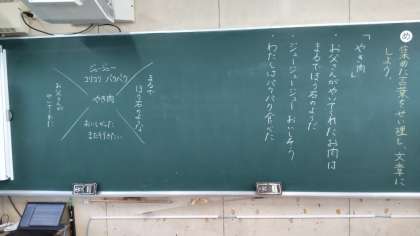 め 集めた言葉をせい理し、文章に
しよう。
「やき肉」
・お父さんがやいてくれたお肉は
まるでほう石のようだ
・ジュージュージュー おいしそう
・わたしはパクパク食べた
まるで
ほう石のような
ジュージュー
コリコリ パクパク
やき肉
おいしかった
また行きたい
お父さんが
やいてくれた